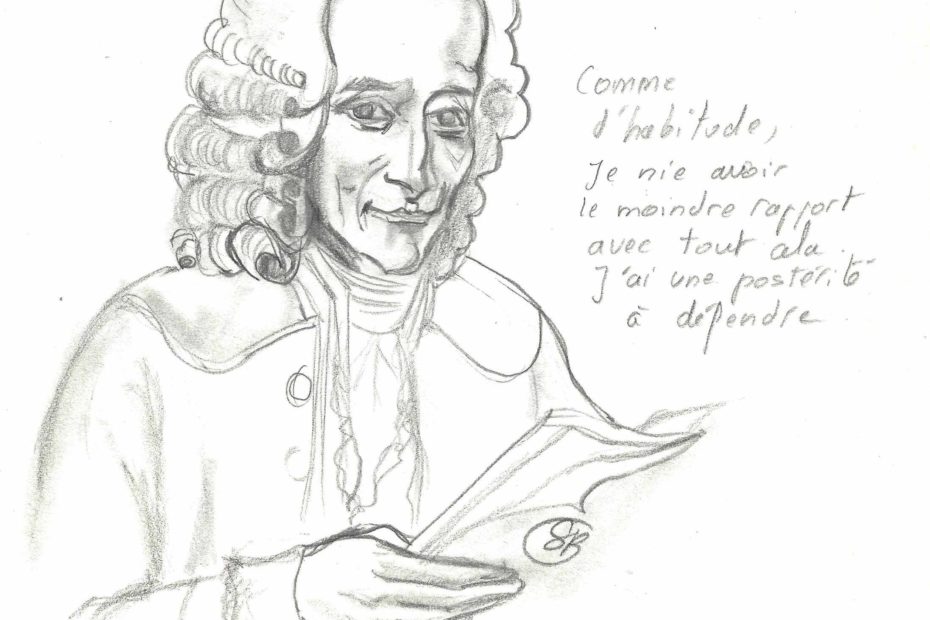 Comme
d'habitude,
Je nie avoir
le moindre rapport
avec tout cela.
J'ai une postérité
à défendre
SB